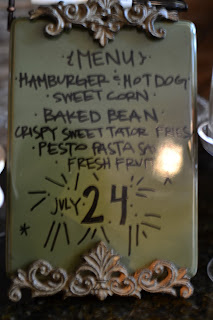 {MENU}
·HAMBURGER & HOT DOG·
·SWEET CORN·
·BAKED BEAN·
CRISPY SWEET TATOR FRIES
·PESTO PASTA
·FRESH FRUIT
JULY 24